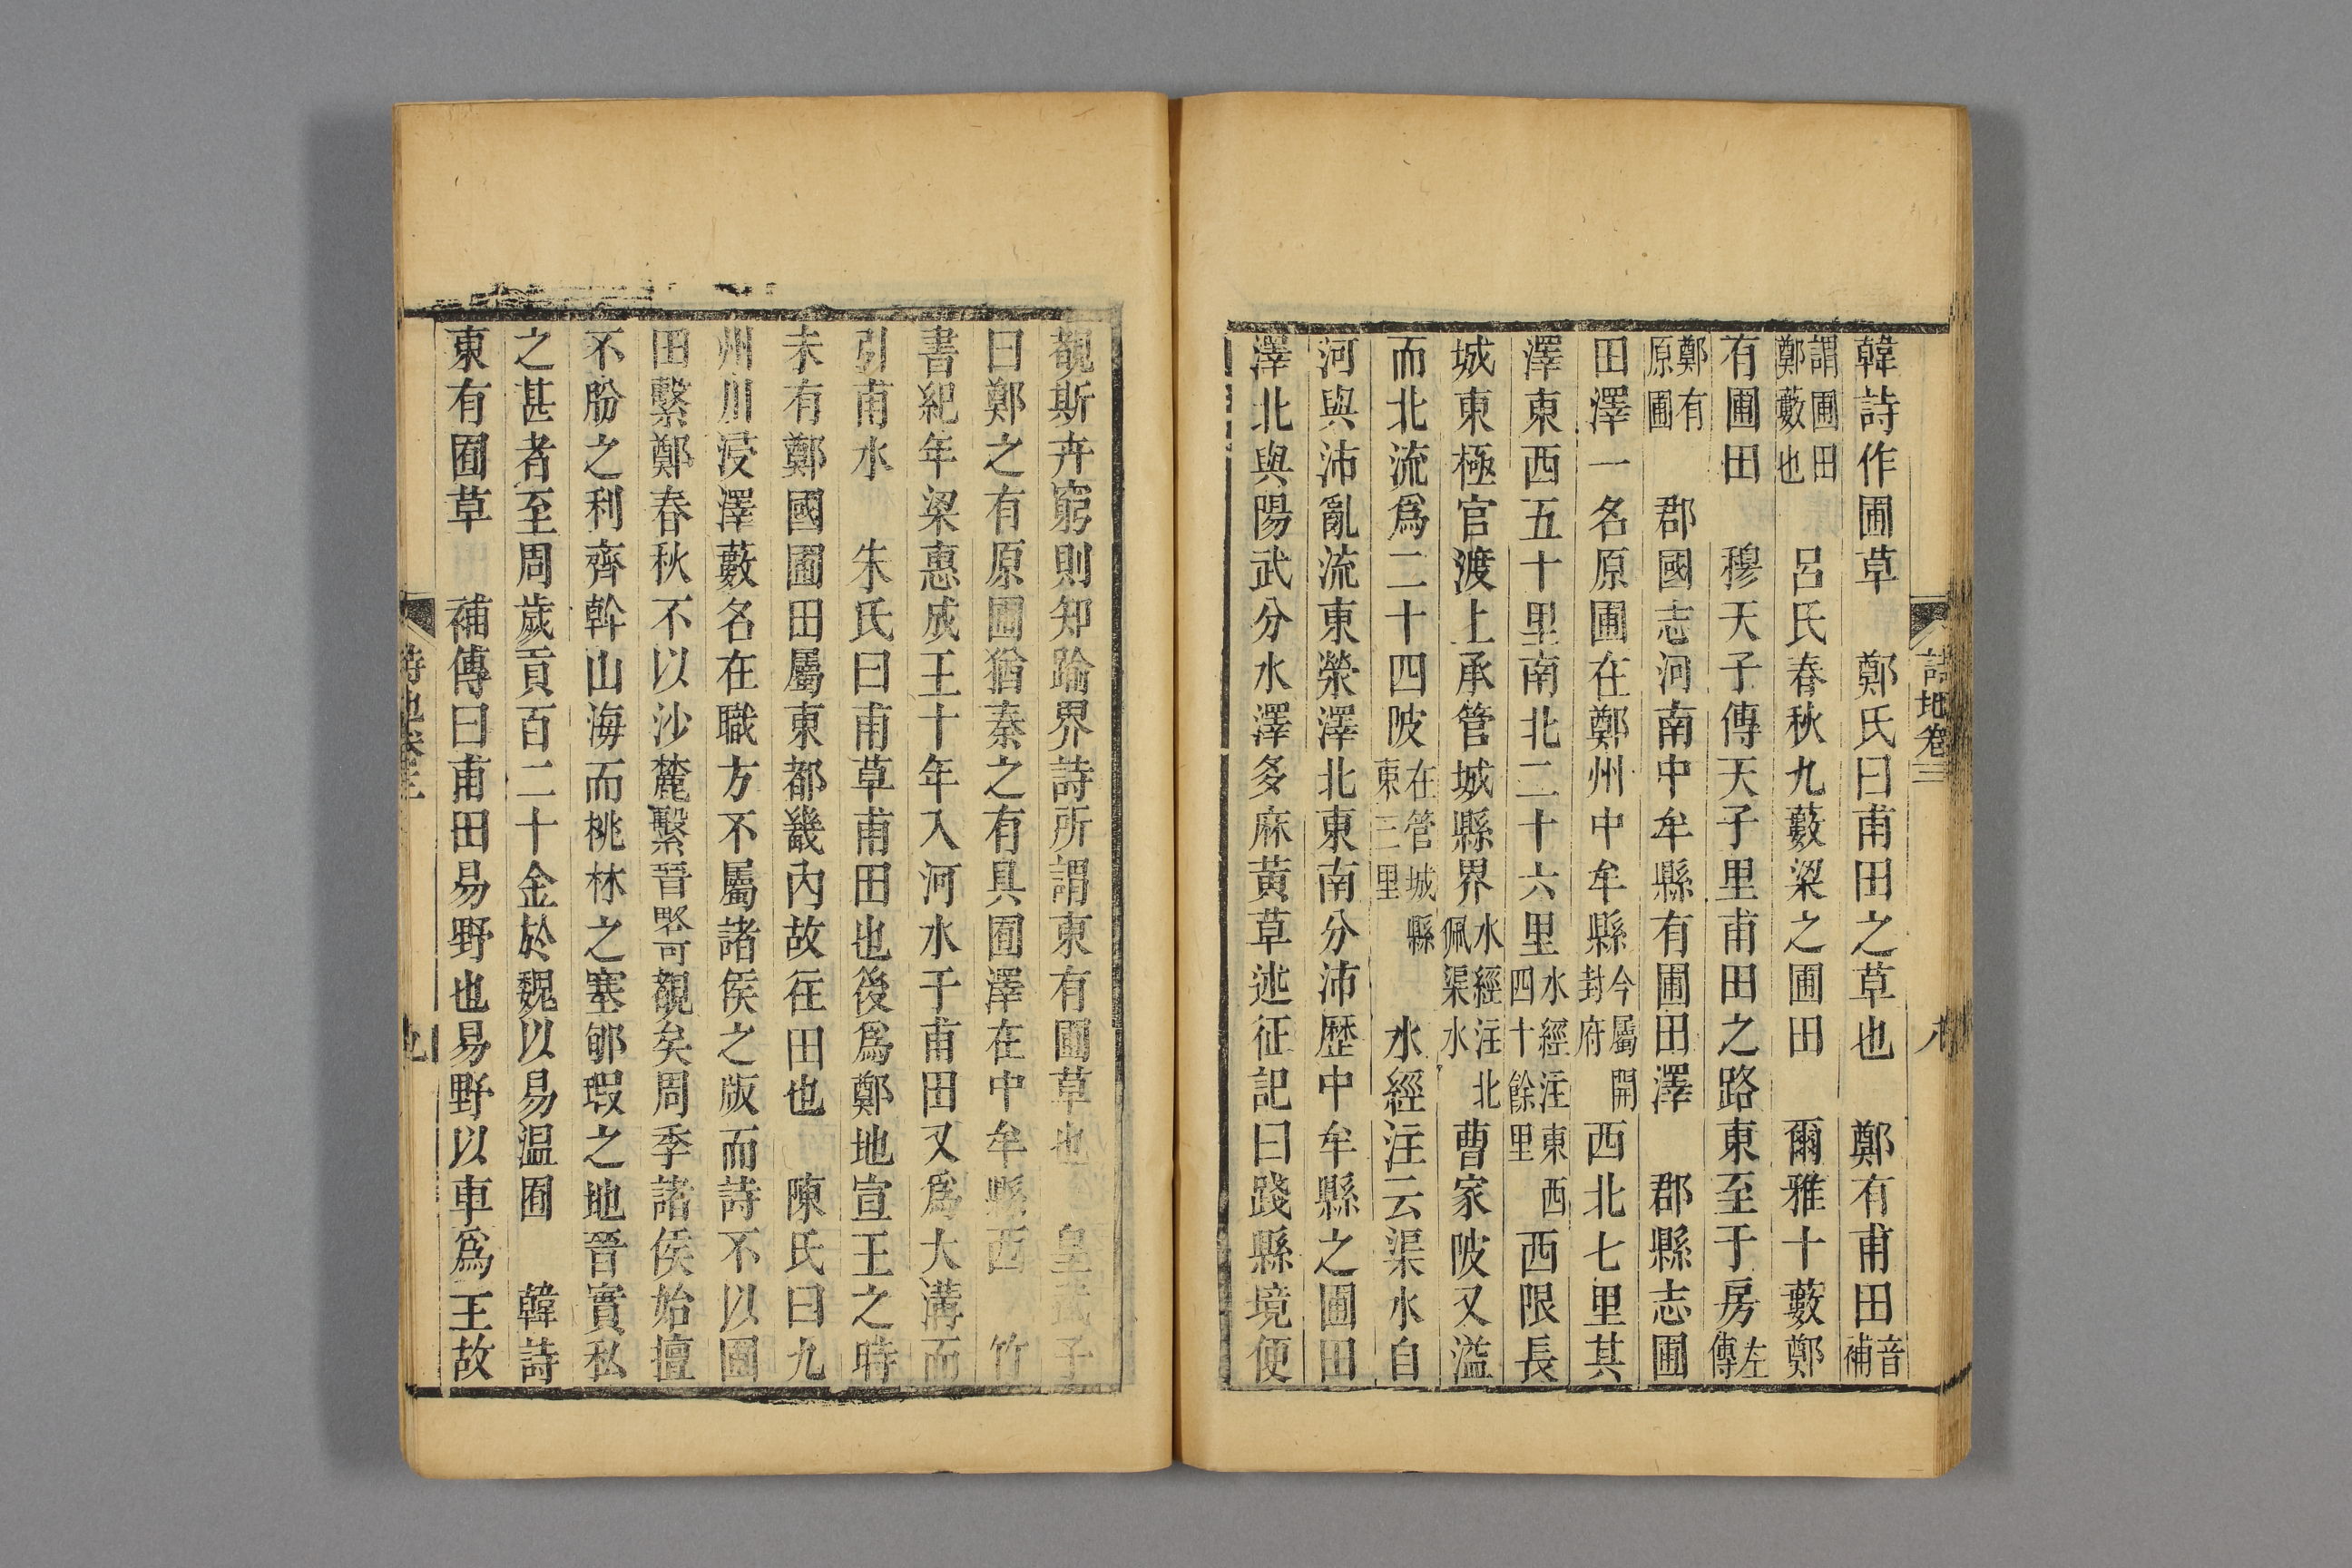 詩地卷三　八
韓詩作圃草　鄭氏曰甫田之草也　鄭有甫田音補
謂圃田鄭藪也　呂氏春秋九藪梁之圃田　爾雅十藪鄭
有圃田　穆天子傳天子里甫田之路東至于房左傳
鄭有原圃　郡國志河南中牟縣有圃田澤　郡縣志圃
田澤一名原圃在鄭州中牟縣今屬開封府西北七里其
澤東西五十里南北二十六里水經注東西四十餘里西限長
城東極官渡上承管城縣界水經注北佩渠水曹家陂又溢
而北流爲二十四陂在管城縣東三里　水經注云渠水自
河與沛亂流東滎澤北東南分沛歷中牟縣之圃田
澤北與陽武分水澤多麻黃草述征記曰踐縣境便
覩斯卉窮則知踰界詩所謂東有圃草也　皇武子
曰鄭之有原圃猶秦之有具囿澤在中牟縣西　竹
書紀年梁惠成王十年入河水于甫田又爲大溝而
引甫水　朱氏曰甫草甫田也後爲鄭地宣王之時
未有鄭國圃田屬東都畿內故往田也　陳氏曰九
州川浸澤藪名在職方不屬諸侯之版而詩不以圃
田繫鄭春秋不以沙麓繫晉畧可覩矣周季諸侯始擅
不朌之利齊斡山海而桃林之塞郇瑕之地晉實私
之甚者至周歲貢百二十金於魏以易温囿　韓詩
東有圃草　補傳曰甫田易野也易野以車爲主故
詩地卷三　九